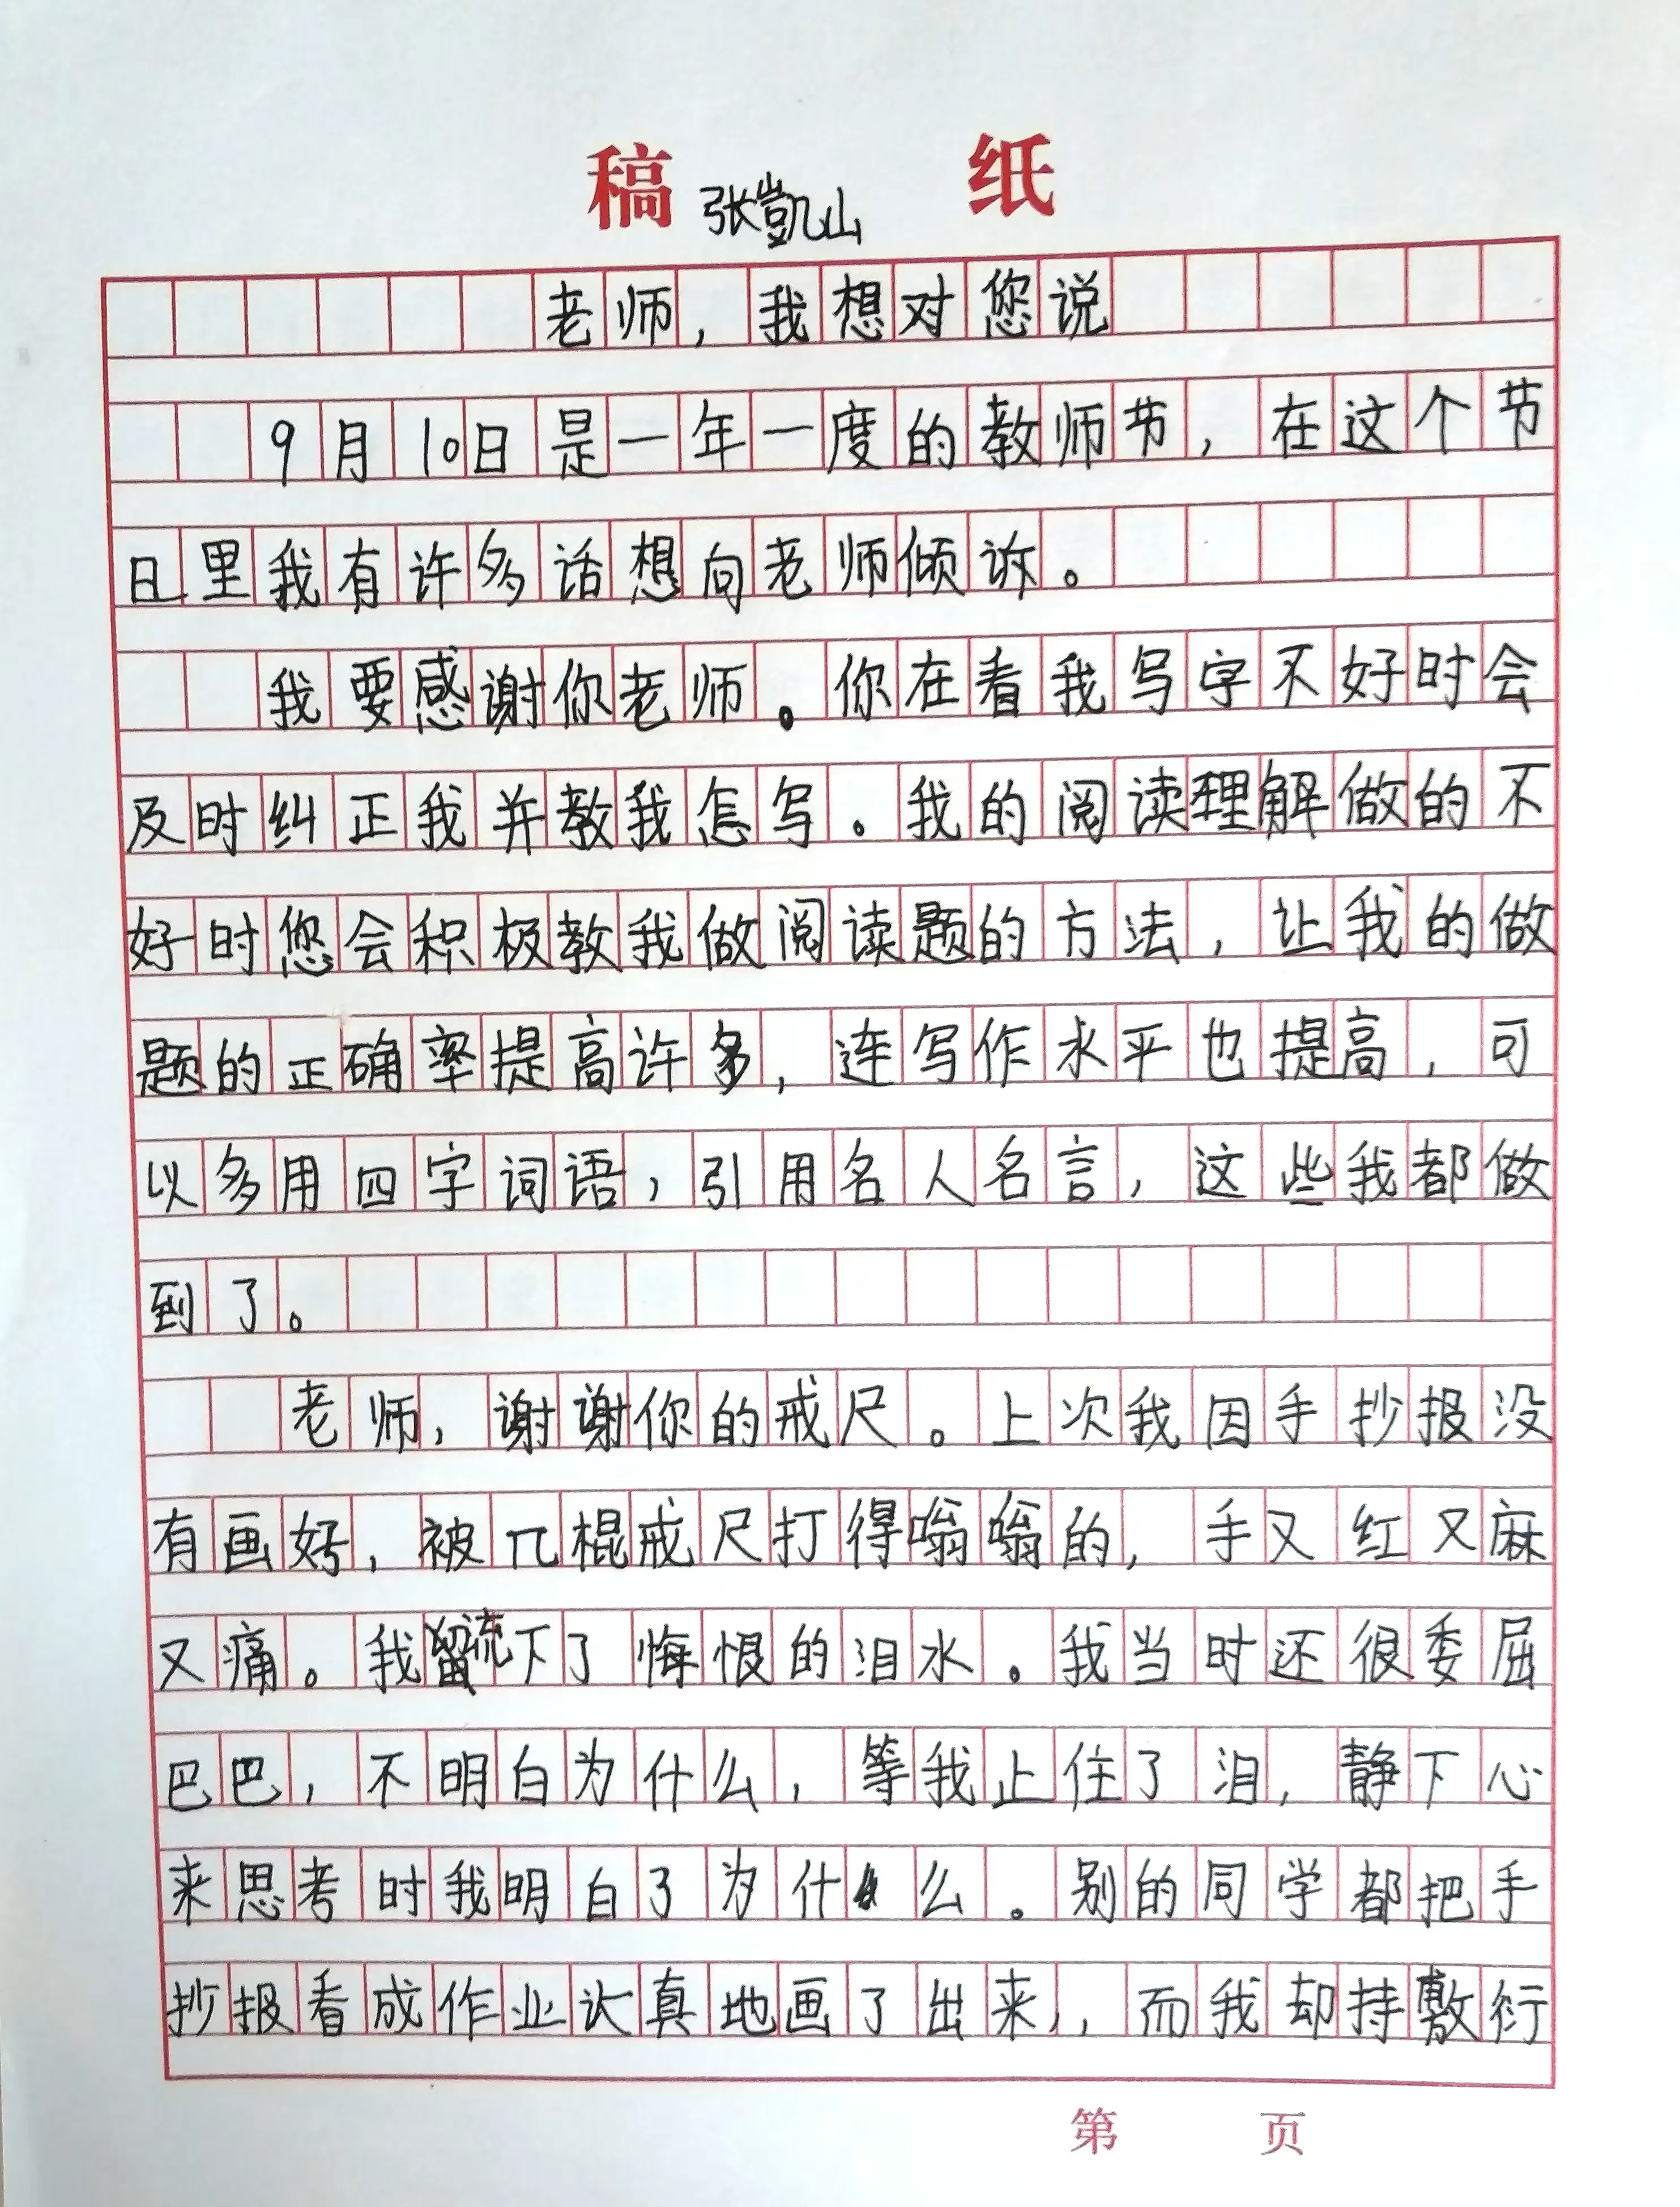 稿 纸
张凱山
老师，我想对您说
9月10日是一年一度的教师节，在这个节
日里我有许多话想向老师倾诉。
我要感谢你老师。你在看我写字不好时会
及时纠正我并教我怎写。我的阅读理解做的不
好时您会积极教我做阅读题的方法，让我的做
题的正确率提高许多，连写作水平也提高，可
以多用四字词语，引用名人名言，这些我都做
到了。
老师，谢谢你的戒尺。上次我因手抄报没
有画好，被π棍戒尺打得嗡嗡的，手又红又麻
又痛。我流下了悔恨的泪水。我当时还很委屈
巴巴，不明白为什么，等我止住了泪，静下心
来思考时我明白了为什么。别的同学都把手
抄报看成作业认真地画了出来，，而我却持敷衍
第 页